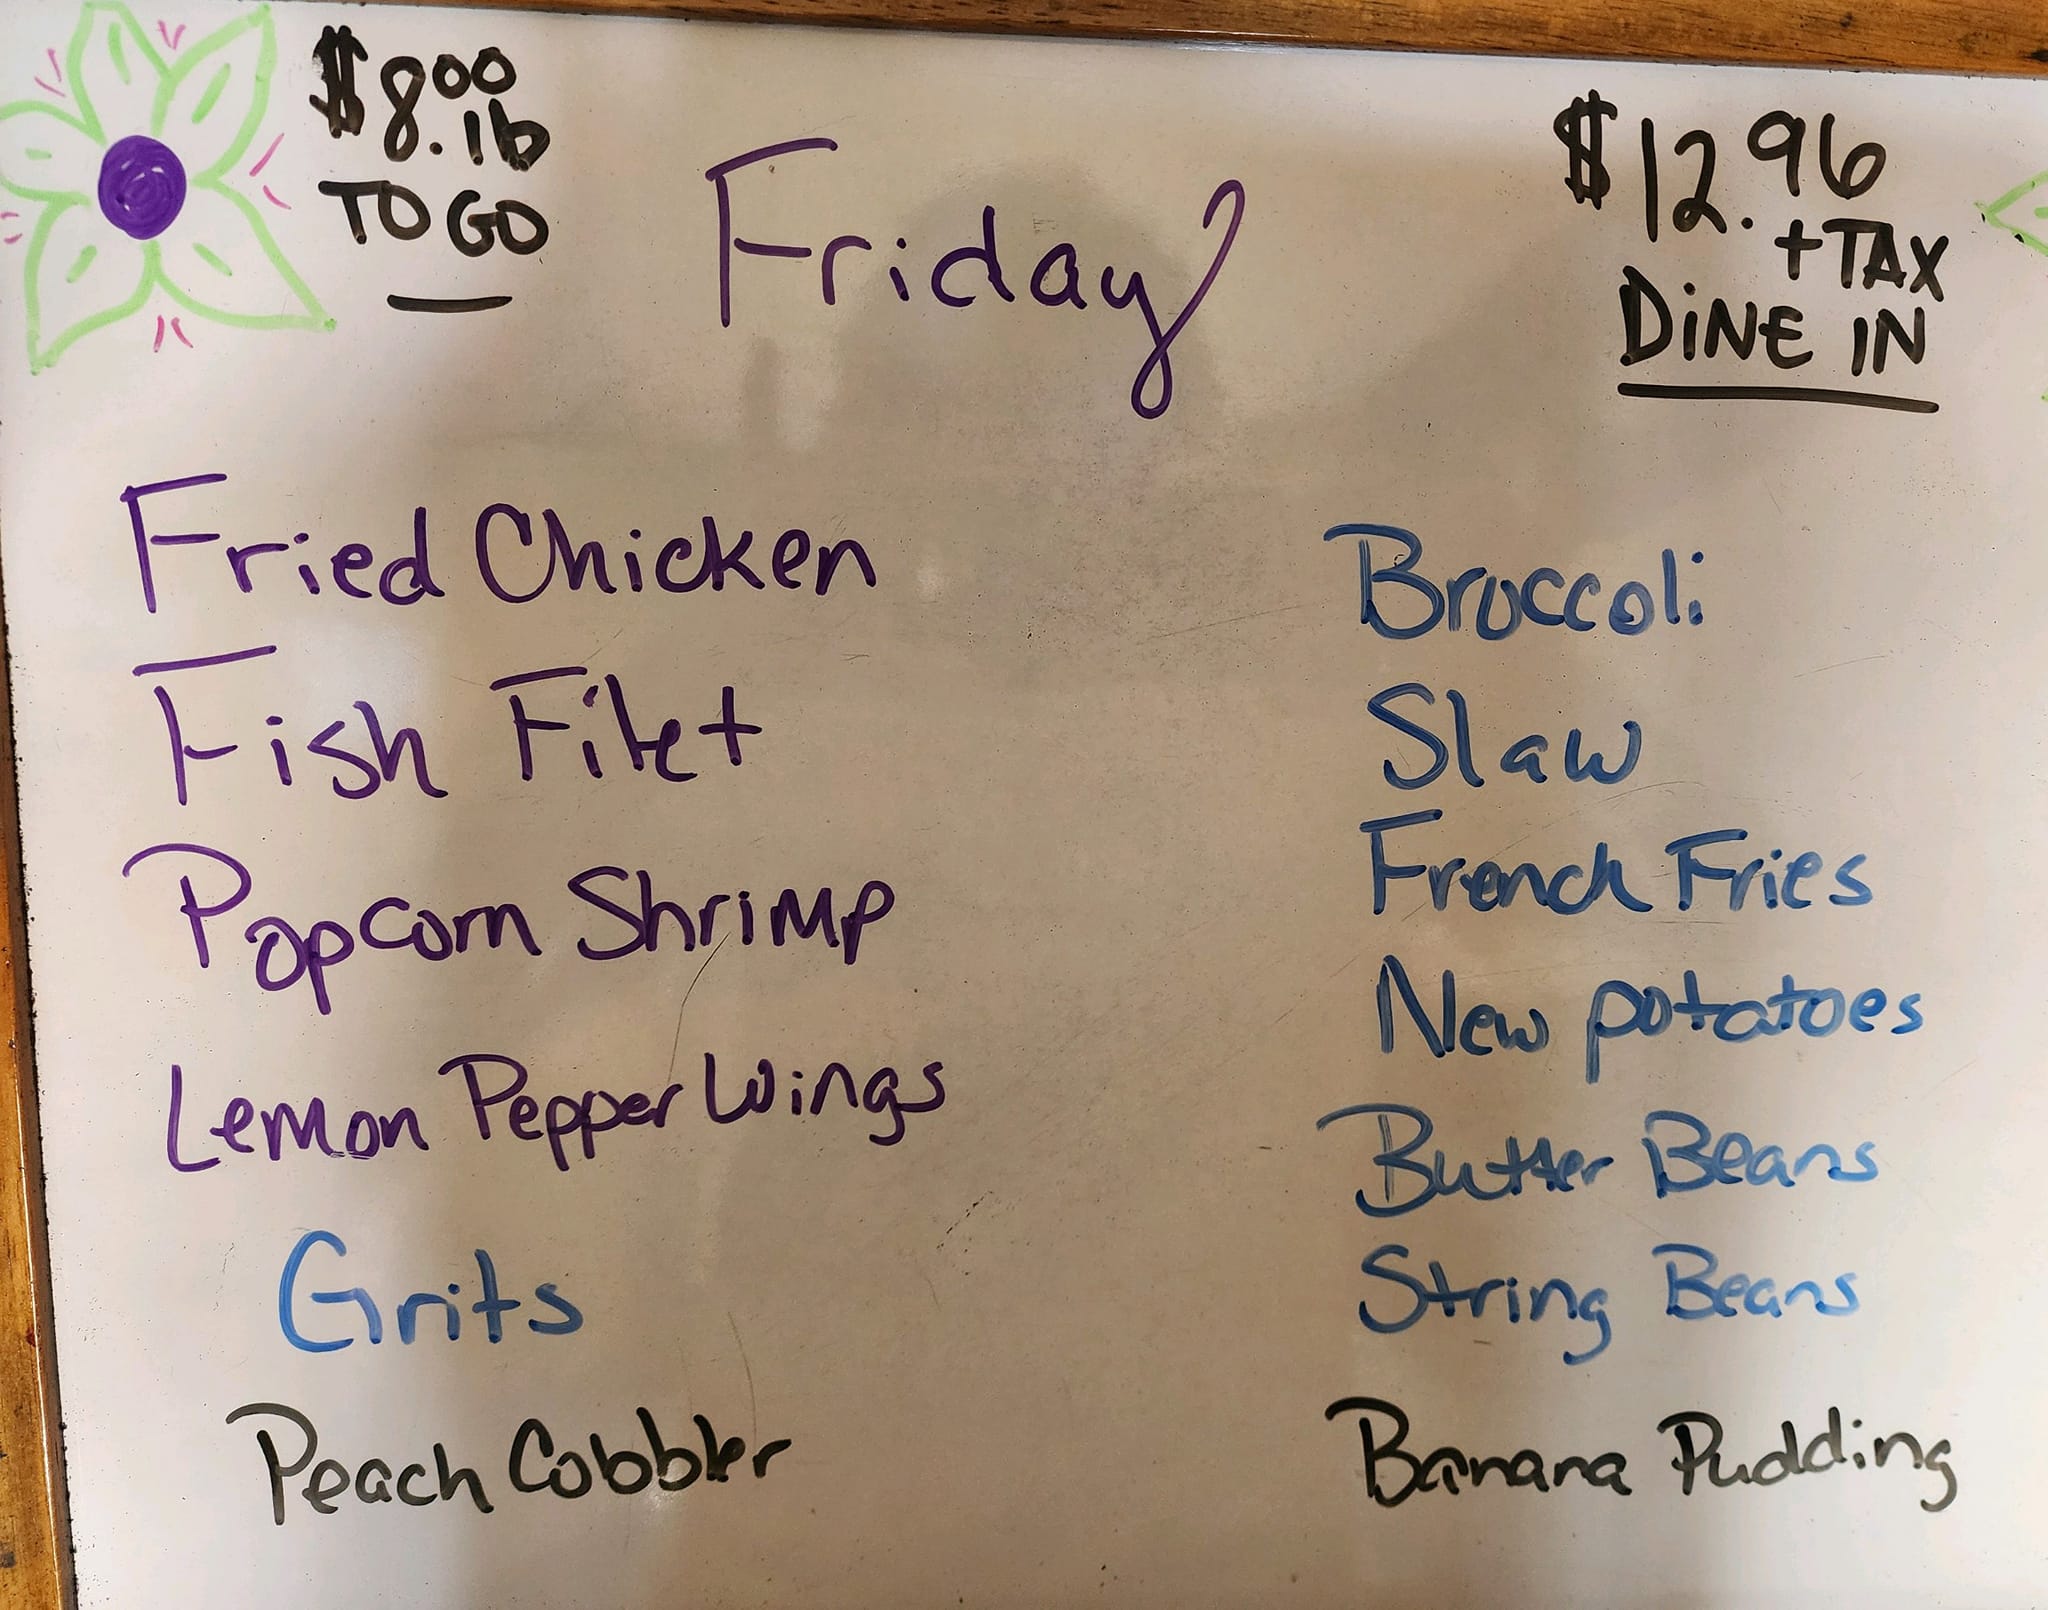 $8.00 lb
TO GO
Friday
$12.96
+TAX
DINE IN
Fried Chicken
Fish Filet
Popcorn Shrimp
Lemon Pepper Wings
Grits
Peach Cobbler
Broccoli
Slaw
French Fries
New potatoes
Butter Beans
String Beans
Banana Pudding